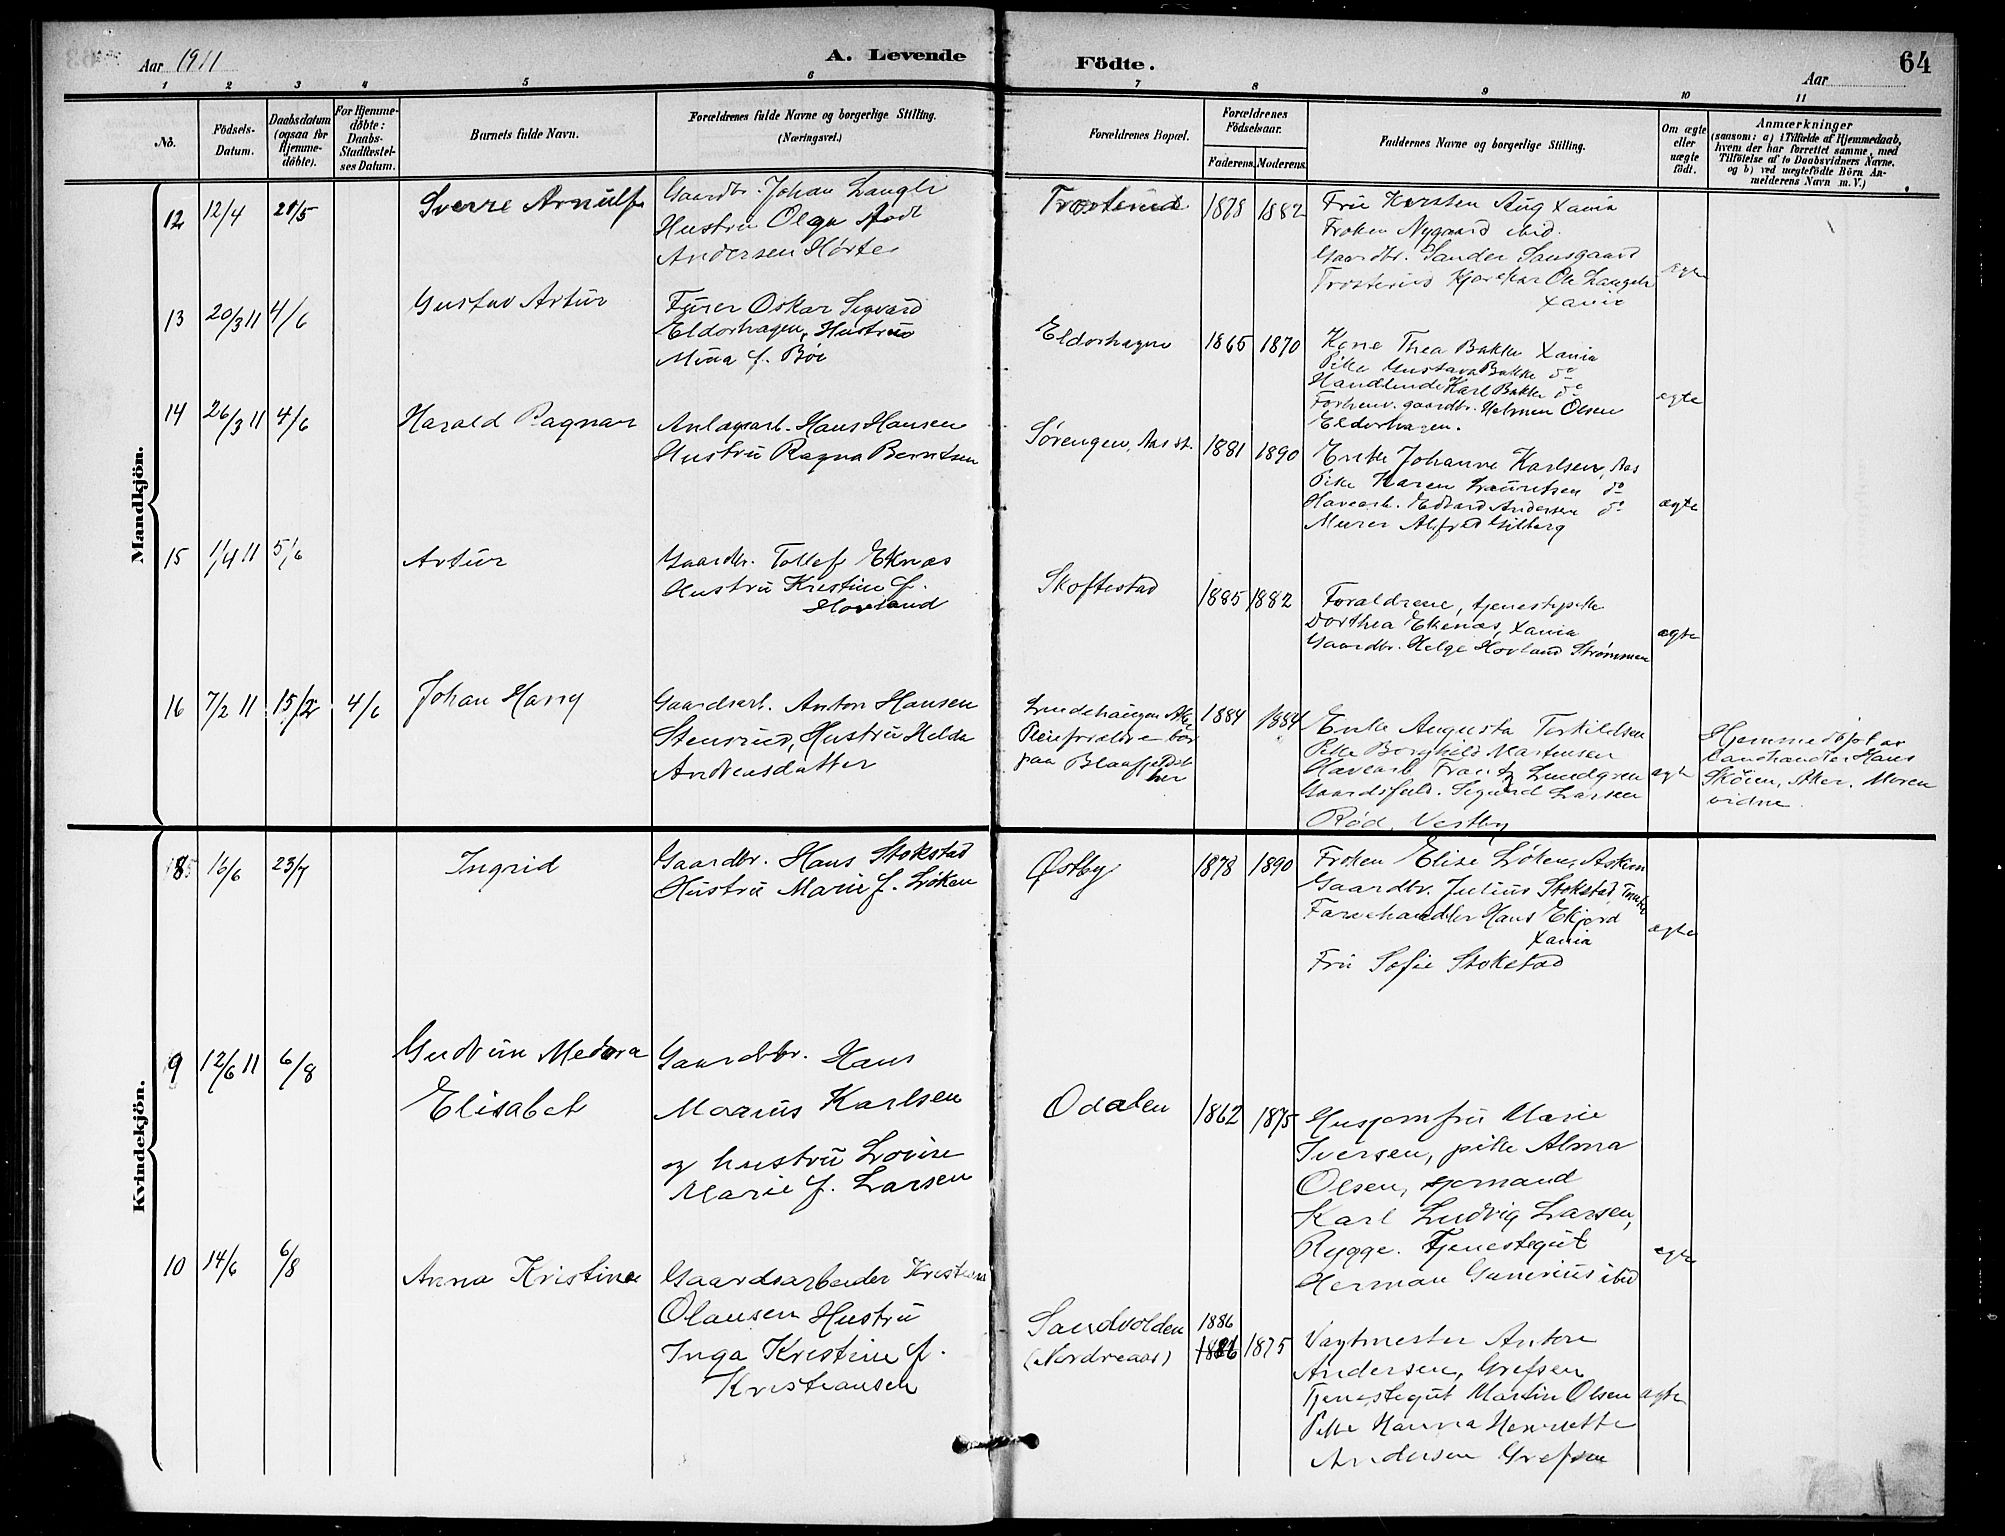 Aar 1911
A. Levende Födte.
Aar
64
1 2 3 4 5 6 7 8 9 10 11
No.
Födsels-Datum.
Daabsdatum (ogsaa for Hjemme-döbte).
For Hjemme-döbte: Daabs-Stadfæstel-ses Datum.
Barnets fulde Navn.
Forældrenes fulde Navne og borgerlige Stilling.
(Næringsvei.)
Forældrenes Bopæl.
Forældrenes Födselsaar.
Faderens. Moderens.
Faddernes Navne og borgerlige Stilling.
Om ægte eller uægte födt.
Anmærkninger
(saasom: a) i Tilfælde af Hjemmedaab, hvem der har forrettet samme, med Tilföielse af to Daabsvidners Navne, og b) ved uægtefödte Börn An-melderens Navn m. V.)
Mandkjön.
12 12/4 21/5
Sverre Arnulf
Gaardbr. Johan Langli
Hustru Olga født
Andersen Hørte
Trosterud
1878 1882
Fru Karsten Aug Xania
Frøken Nygaard ibid.
Gaardbr. Sander Sansgaard
Trosterud Kjørekar Ole Langli
Xania
ægte
13 20/3 11 4/6
Gustav Artur
Furer Oskar Sigvard
Eldorhagen, Hustru
Mina f. Bøe
Eldorhagen
1865 1870
Kone Thea Bakke Xania
Pike Gustava Bakke do
Handlende Karl Bakke do
Forhenv. gaardbr. Helmen Olsen
Eldorhagen.
ægte
14 26/3 11 4/6
Harald Ragnar
Anlægsarb. Hans Hansen
Hustru Ragna Berntsen
Sørengen, Aas st.
1881 1890
Enke Johanne Karlsen, Aas
Pike Karen Lauritsen do
Havearb. Edvard Andersen do
Murer Alfred Gilberg
ægte
15 1/4 11 5/6
Artur
Gaardbr. Tollef Eknæs
Hustru Kristine f.
Hovland
Skoftestad
1885 1882
Forældrene, tjenestepike
Dorthea Ekenæs, Xania
Gaardbr. Helge Hovland Strømmen
ægte
16 7/2 11 15/2 4/6
Johan Harry
Gaardsarb. Anton Hansen
Stensrud, Hustru Helda
Andreasdatter
Lindehaugen Aker
Pleieforældre bor
paa Blaafjeldet
her
1884 1884
Enke Augusta Torkildsen
Pike Borghild Martinsen
Havearb Frantz Lundgren
Gaardsfuld. Sigurd Larsen
Rød, Vestby
ægte
Hjemmedøpt av
Landhandler Hans
Skøien, Aker. Moren
vidne.
Kvindekjön.
8 16/6 23/7
Ingrid
Gaardbr. Hans Stokstad
Hustru Marie f. Løken
Østby
1878 1890
Frøken Elise Løken, Askim
Gaardbr. Julius Stokstad,
Farvehandler Hans Ekjord
Xania
Fru Sofie Stokstad
ægte
9 12/6 11 6/8
Gudrun Medora
Elisabet
Gaardbr. Hans
Marius Karlsen
og hustru Lovise
Marie f. Larsen
Odalen
1862 1875
Husjomfru Marie
Iversen, pike Alma
Olsen, sjømand
Karl Ludvig Larsen,
Rygge. Tjenestegut
Herman Gunerius ibid
ægte
10 14/6 6/8
Anna Kristine
Gaardsarbeider Kristian
Olausen Hustru
Inga Kristine f.
Kristiansen
Sandvolden
(Nordreaas)
1886
1886 1875
Vagtmester Anton
Andersen, Grefsen
Tjenestegut Martin Olsen
Pike Hanna Henriette
Andersen Grefsen
ægte